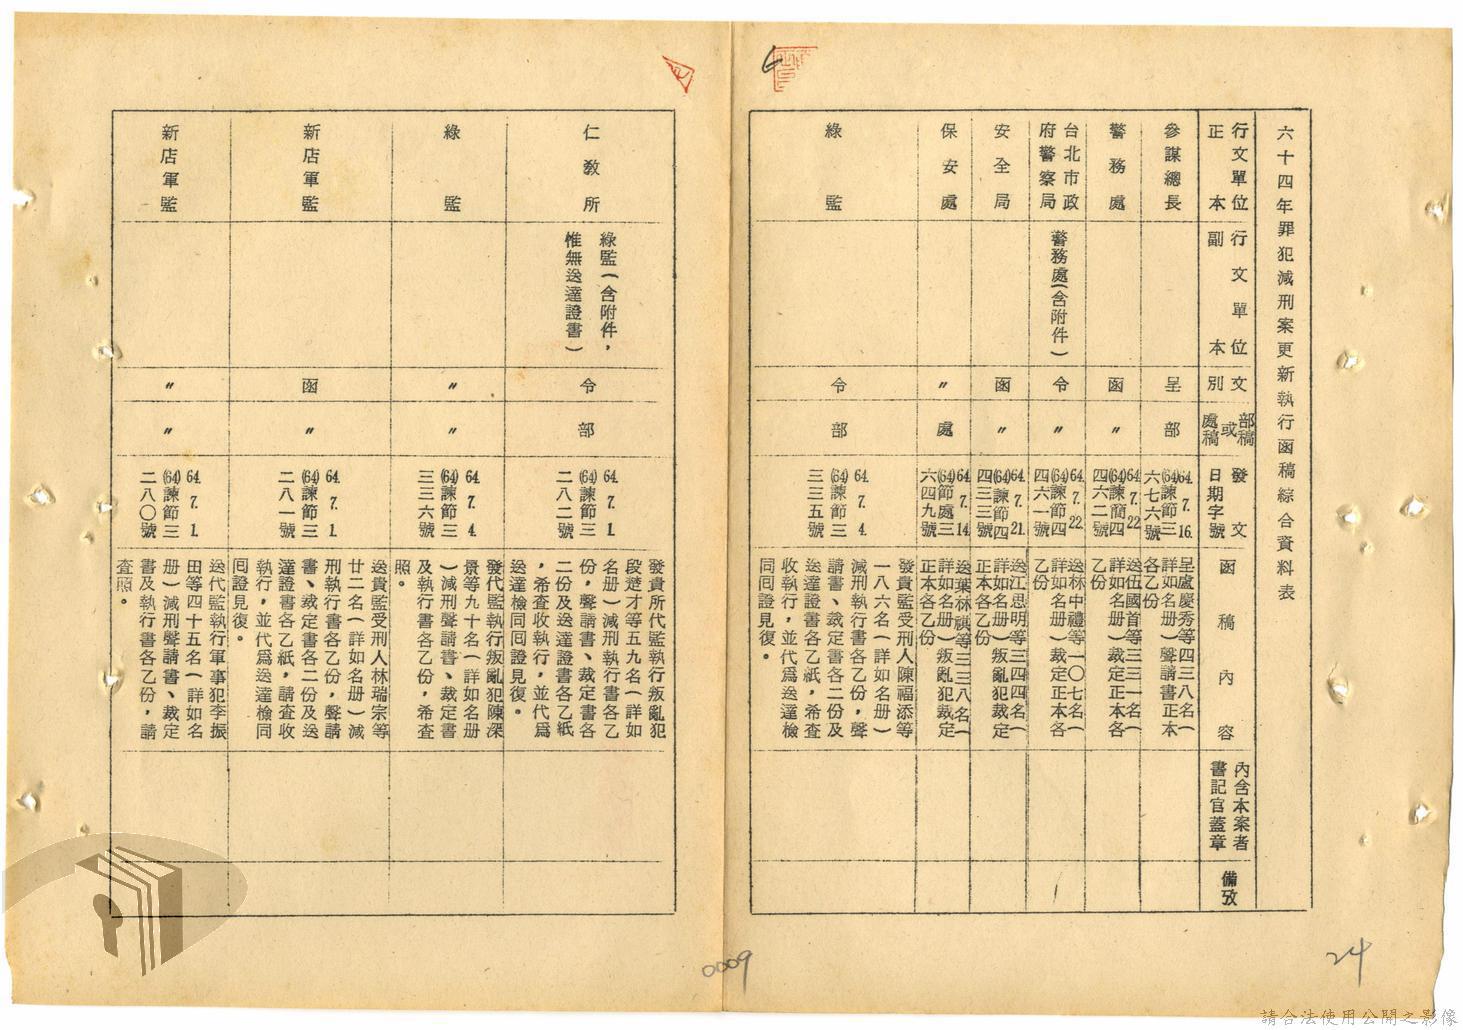 六十四年罪犯減刑案更新執行函稿綜合資料表
行文單位
正本
行文單位
副本
文別
部稿
或
處稿
發文
日期字號
函稿內容
內含本案者
書記官蓋章
備攷
參謀總長
呈
部
64. 7. 16.
(64)諫節三
六七六號
呈盧慶秀等四三八名(
詳如名册)聲請書正本
各乙份
警務處
函
〃
64. 7. 22.
(64)諫簡四
四六二號
送伍國首等三三一名(
詳如名册)裁定正本各
乙份
台北市政
府警察局
警務處(含附件)
令
〃
64. 7. 22.
(64)諫節四
四六一號
送林中禮等一〇七名(
詳如名册)裁定正本各
乙份
安全局
函
〃
64. 7. 21.
(64)諫節四
四三三號
送江思明等三四四名(
詳如名册)叛亂犯裁定
正本各乙份
保安處
〃
處
64. 7. 14.
(64)節處三
六四九號
送葉林祺等三三八名(
詳如名册)叛亂犯裁定
正本各乙份
綠監
令
部
64. 7. 4.
(64)諫節三
三三五號
發貴監受刑人陳福添等
一八六名(詳如名册)
減刑執行書各乙份,聲
請書、裁定書各二份及
送達證書各乙紙,希查
收執行,並代爲送達檢
同囘證見復。
仁教所
綠監(含附件,
惟無送達證書)
令
部
64. 7. 1.
(64)諫節三
二八二號
發貴所代監執行叛亂犯
段楚才等五九名(詳如
名册)減刑執行書各乙
份,聲請書、裁定書各
二份及送達證書各乙紙
,希査收執行,並代爲
送達檢同囘證見復。
綠監
〃
〃
64. 7. 4.
(64)諫節三
三三六號
發代監執行叛亂犯陳深
景等九十名(詳如名册
)減刑聲請書、裁定書
及執行書各乙份,希査
照。
新店軍監
函
〃
64. 7. 1.
(64)諫節三
二八一號
送貴監受刑人林瑞宗等
廿二名(詳如名册)減
刑執行書各乙份,聲請
書、裁定書各二份及送
達證書各乙紙,請査收
執行,並代爲送達檢同
囘證見復。
新店軍監
〃
〃
64. 7. 1.
(64)諫節三
二八〇號
送代監執行軍事犯李振
田等四十五名(詳如名
册)減刑聲請書、裁定
書及執行書各乙份,請
査照。
0009
24
請合法使用公開之影像